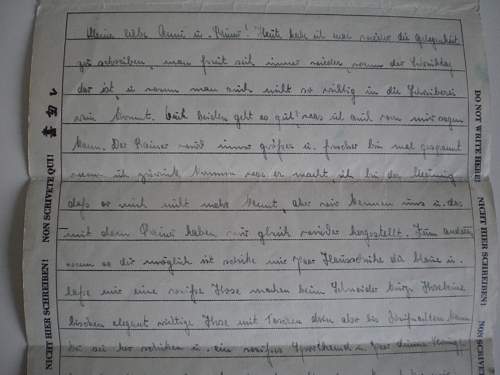 Meine liebe Anni u. Raini! Heute habe ich mal wieder die Gelegenheit
zu schreiben, man freut sich immer wieder wenn der Schreibtag
dar ist, u wenn man auch nicht so richtig in die Schreiberei
rein kommt. Euch beiden geht es gut! was ich auch von mir sagen
kann. Der Rainer wird immer größer u. frecher bin mal gespannt
wenn ich zurück komme was er macht, ich bin der Meinung
daß er mich nicht mehr kennt, aber wir kennen uns u. das
mit dem Raini haben wir gleich wieder hergestellt. Zum andern
wenn es dir möglich ist schicke mir paar Hausschuhe
laße mir eine weiße Hose machen beim Schneider kurze
bischen elegant richtige Hose mit Taschen
du sie her schicken u. ein weißes Sporthemd u. paar dünne
NICHT HIER SCHREIBEN!
NON SCRIVETE QUI!
DO NOT WRITE HERE!
NICHT HIER SCHREIBEN!
NON SCRIVETE